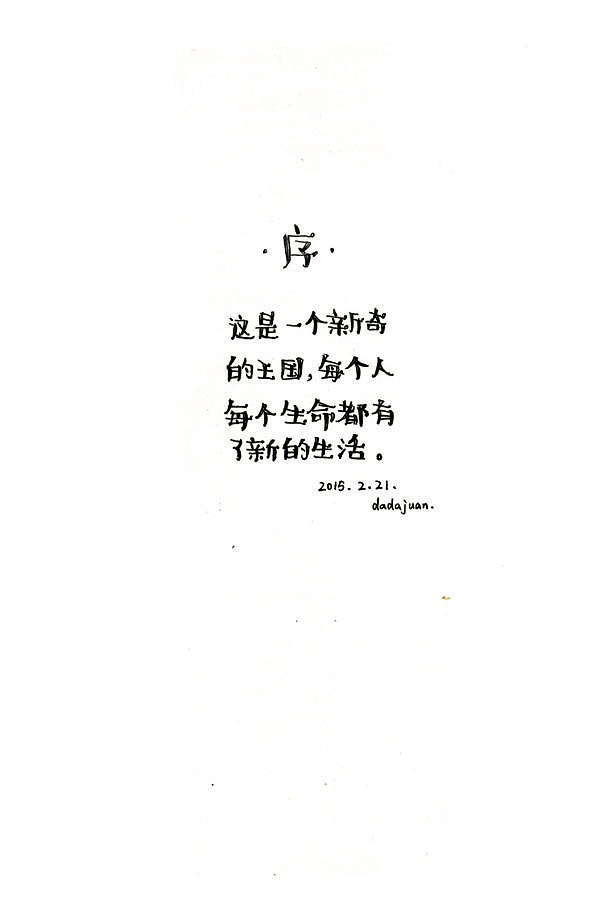 ·序·
这是一个新奇
的王国,每个人
每个生命都有
了新的生活。
2015.2.21.
dadajuan.